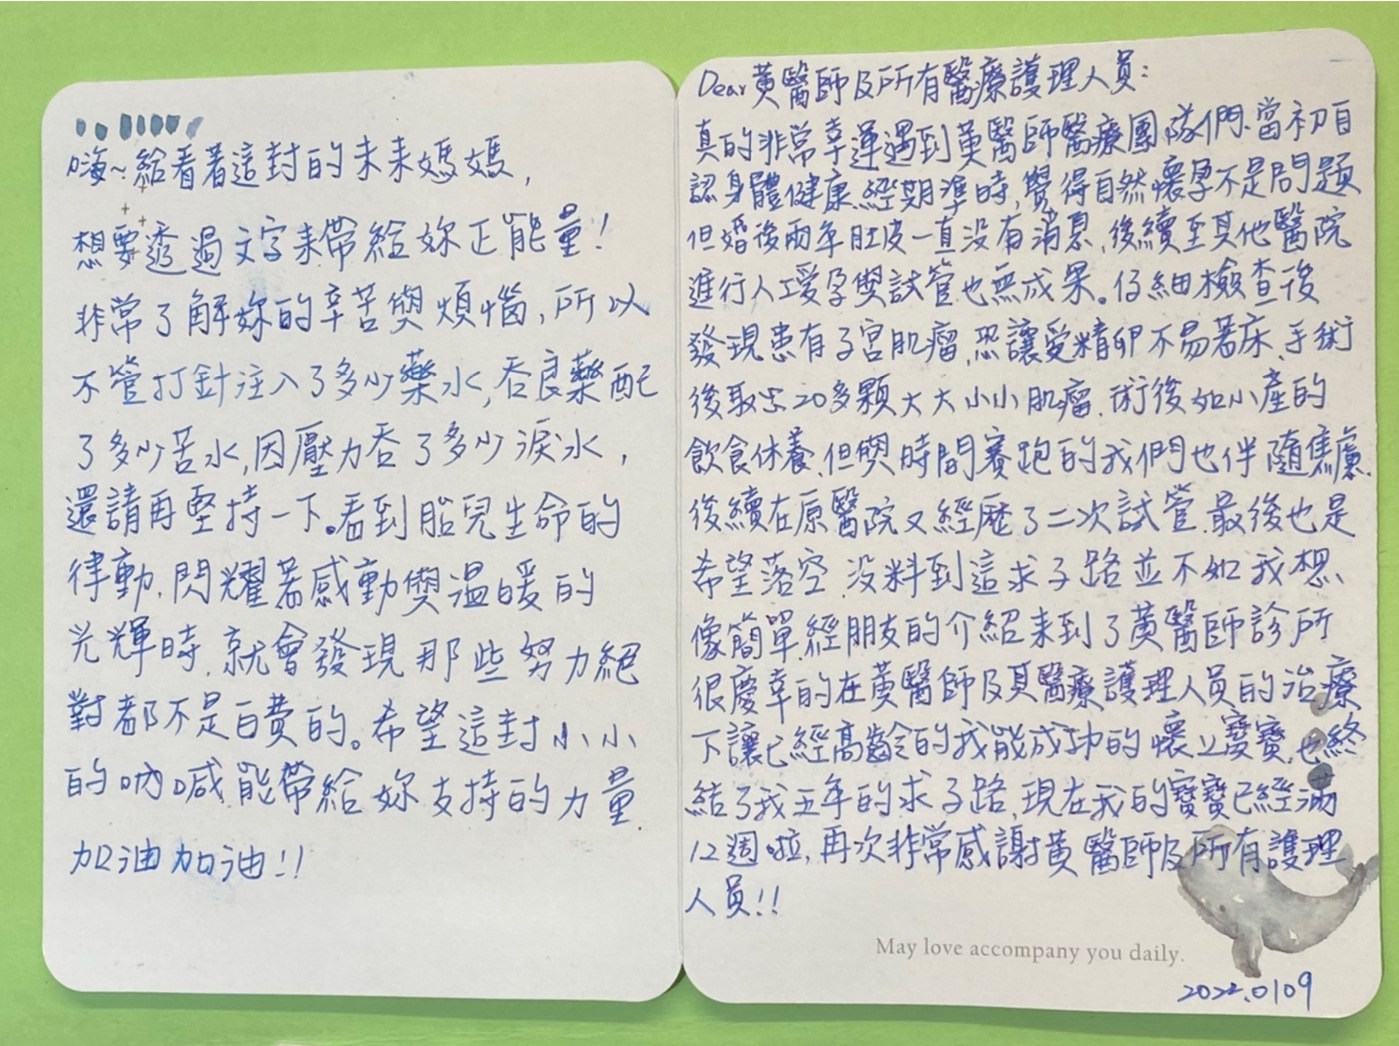 嗨~給看著這封的未來媽媽，
想要透過文字來帶給妳正能量！
非常了解妳的辛苦與煩惱，所以
不管打針注入了多少藥水，吞良藥配
了多少苦水，因壓力吞了多少淚水，
還請再堅持一下。看到胎兒生命的
律動，閃耀著感動與溫暖的
光輝時，就會發現那些努力絕
對都不是白費的。希望這封小小
的吶喊，能帶給妳支持的力量，
加油加油！！
Dear黃醫師及所有醫療護理人員：
真的非常幸運遇到黃醫師醫療團隊們，當初自
認身體健康，經期準時，覺得自然懷孕不是問題
但婚後兩年肚皮一直沒有消息，後續至其他醫院
進行人工受孕與試管也無成果。仔細檢查後
發現患有子宮肌瘤，恐讓受精卵不易著床，手術
後取出20多顆大大小小肌瘤，術後如小產的
飲食休養，但與時間賽跑的我們也伴隨焦慮，
後續在原醫院又經歷了二次試管，最後也是
希望落空，沒料到這求子路並不如我想
像簡單，經朋友的介紹來到了黃醫師診所
很慶幸的在黃醫師及其醫療護理人員的治療
下讓已經高齡的我能成功的懷上寶寶，也終
結了我五年的求子路，現在我的寶寶已經滿
12週啦，再次非常感謝黃醫師及所有護理
人員！！
May love accompany you daily.
2022.0109